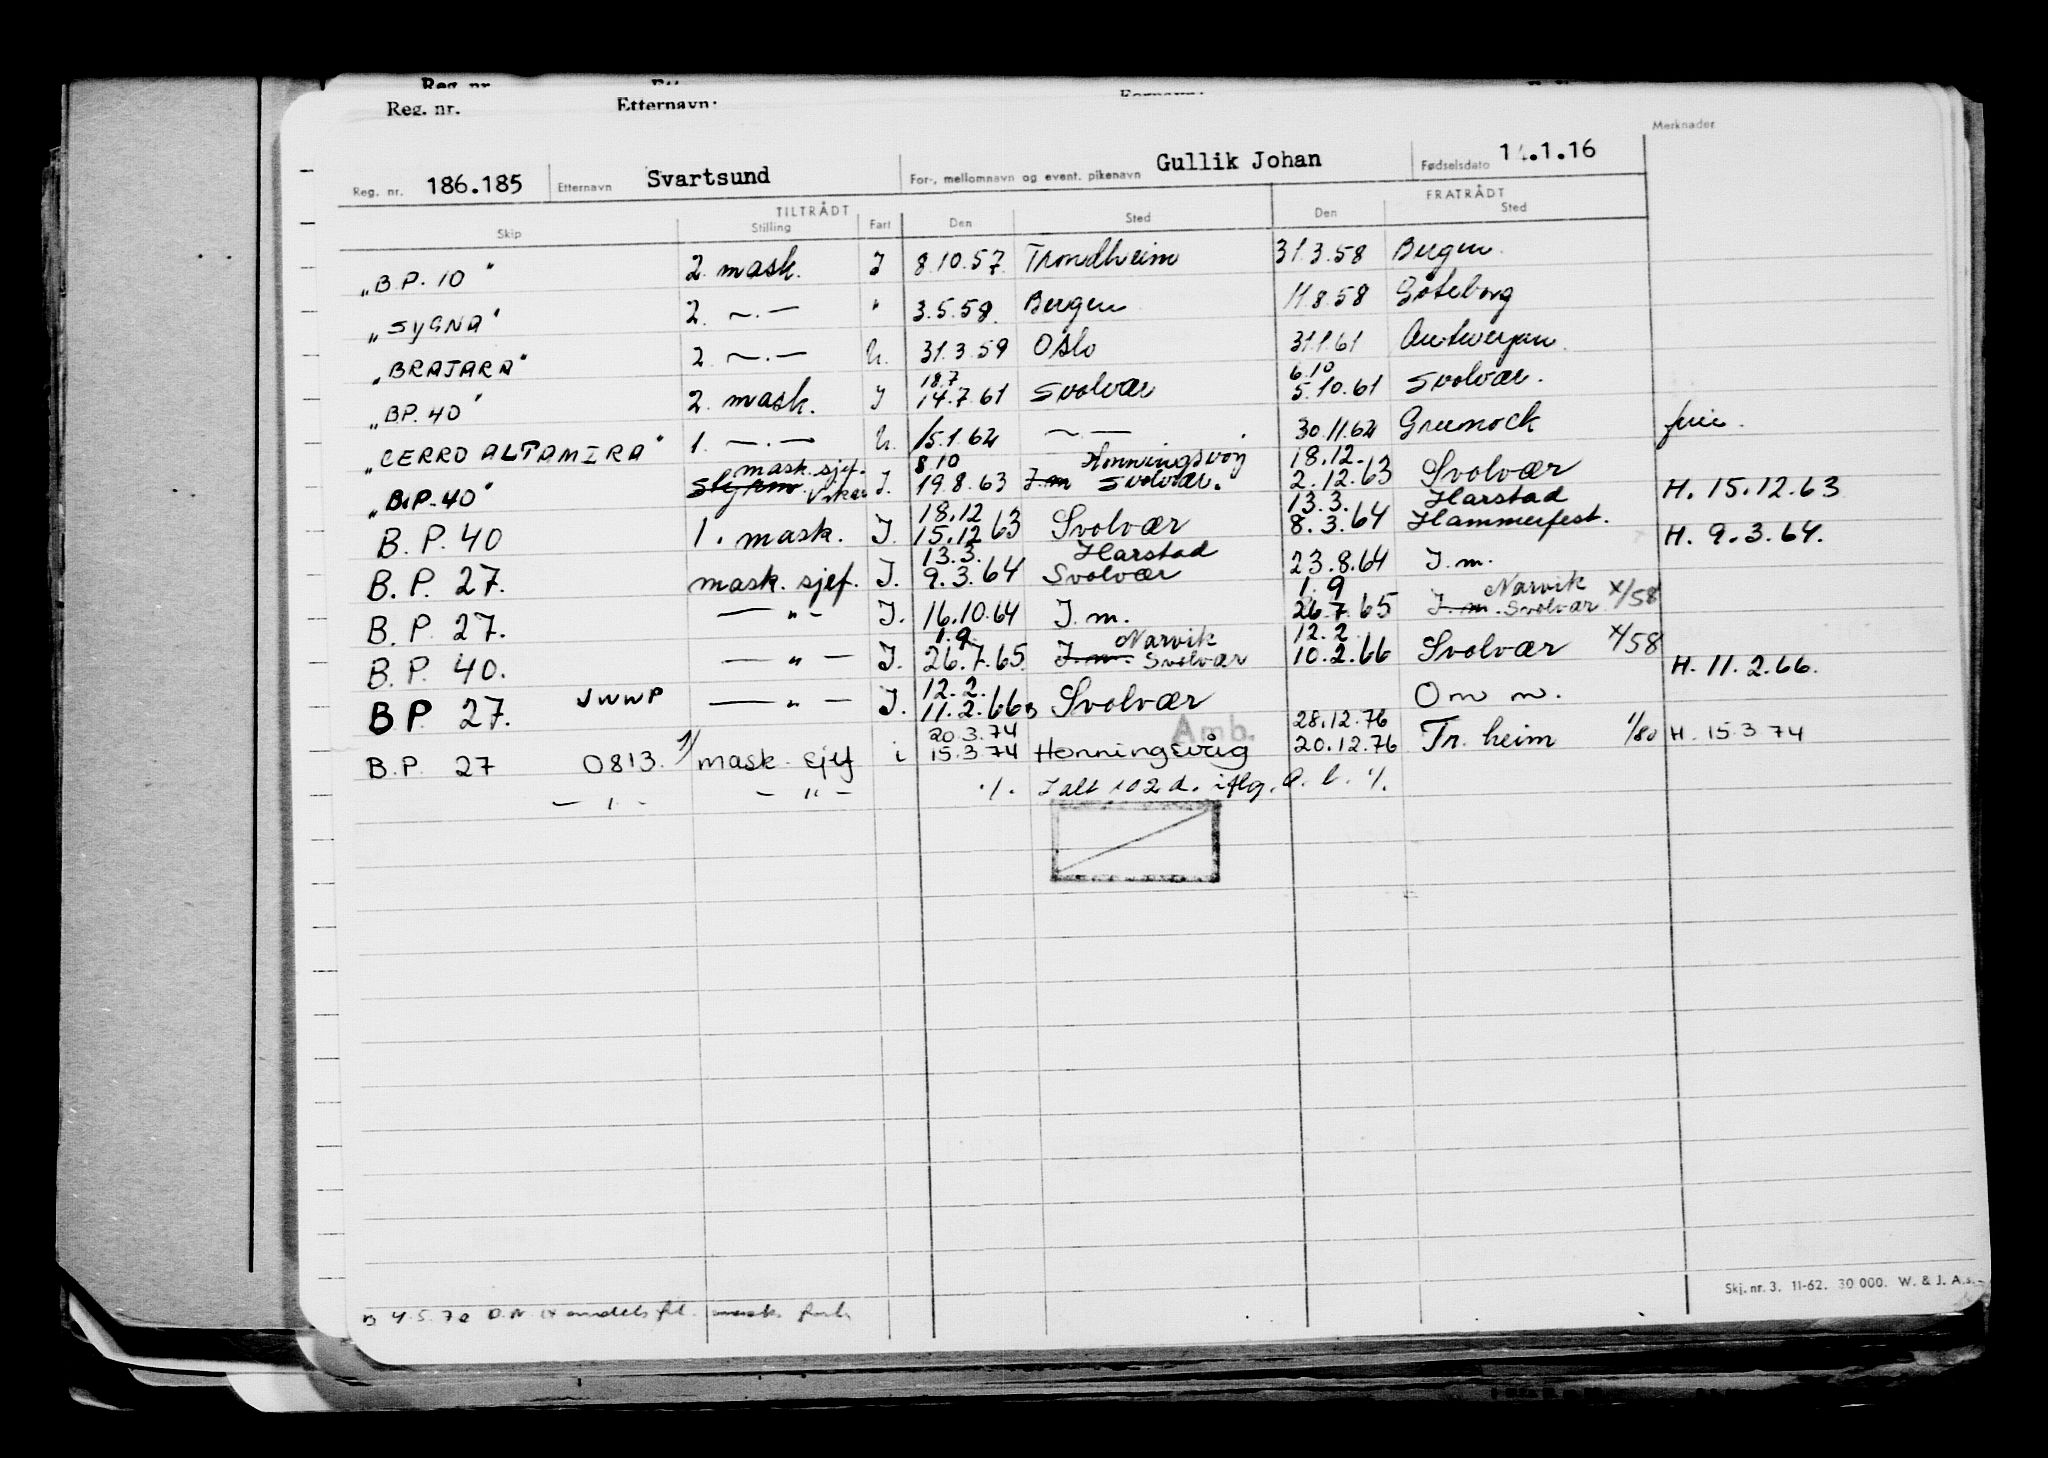 Reg. nr. Etternavn:
Reg. nr. 186.185 Etternavn Svartsund For-, mellomnavn og event. pikenavn Gullik Johan Fødselsdato 14.1.16 Merknader
TILTRÅDT FRATRÅDT
Skip Stilling Fart Den Sted Den Sted
"B.P. 10" 2. mask. I 8.10.57 Trondheim 31.3.58 Bergen
"SYGNA" 2. —.— " 3.5.58. Bergen 11.8.58 Göteborg
"BRAJARA" 2. —.— U. 31.3.59 Oslo 31.1.61 Antwerpen
18.7 6.10
"B.P. 40" 2. mask. I 14.7.61 Svolvær 5.10.61 Svolvær.
"CERRO ALTAMIRA" 1. —.— U. 15.1.62 —.— 30.11.62 Greenock
mask. sjef. 8.10 Honningsvåg 18.12.
"B.P. 40" I. 19.8.63 I.m Svolvær. 2.12.63 Svolvær H. 15.12.63
18.12 13.3. Harstad
B.P. 40 1. mask. I. 15.12.63 Svolvær 8.3.64 Hammerfest. H. 9.3.64.
13.3. Harstad
B.P. 27. mask. sjef. I. 9.3.64 Svolvær 23.8.64 I.m.
1.9 Narvik
B.P. 27. — " — I. 16.10.64 I.m. 26.7.65 I.m. Svolvær x/58
1.9. Narvik 12.2.
B.P. 40. — " — I. 26.7.65. I.m. Svolvær 10.2.66 Svolvær x/58 H. 11.2.66.
12.2.
B.P. 27. JWWP — " — I. 11.2.66 B Svolvær Om m.
20.3.74 Amb. 28.12.76
B.P. 27 0813. 1/ mask. sjef i 15.3.74 Honningsvåg 20.12.76 Tr.heim 1/80 H. 15.3.74
— " — — " — ·/. I alt 102 d. iflg. a. l. ·/.
Skj. nr. 3. 11-62. 30 000. W. & J. A.s.